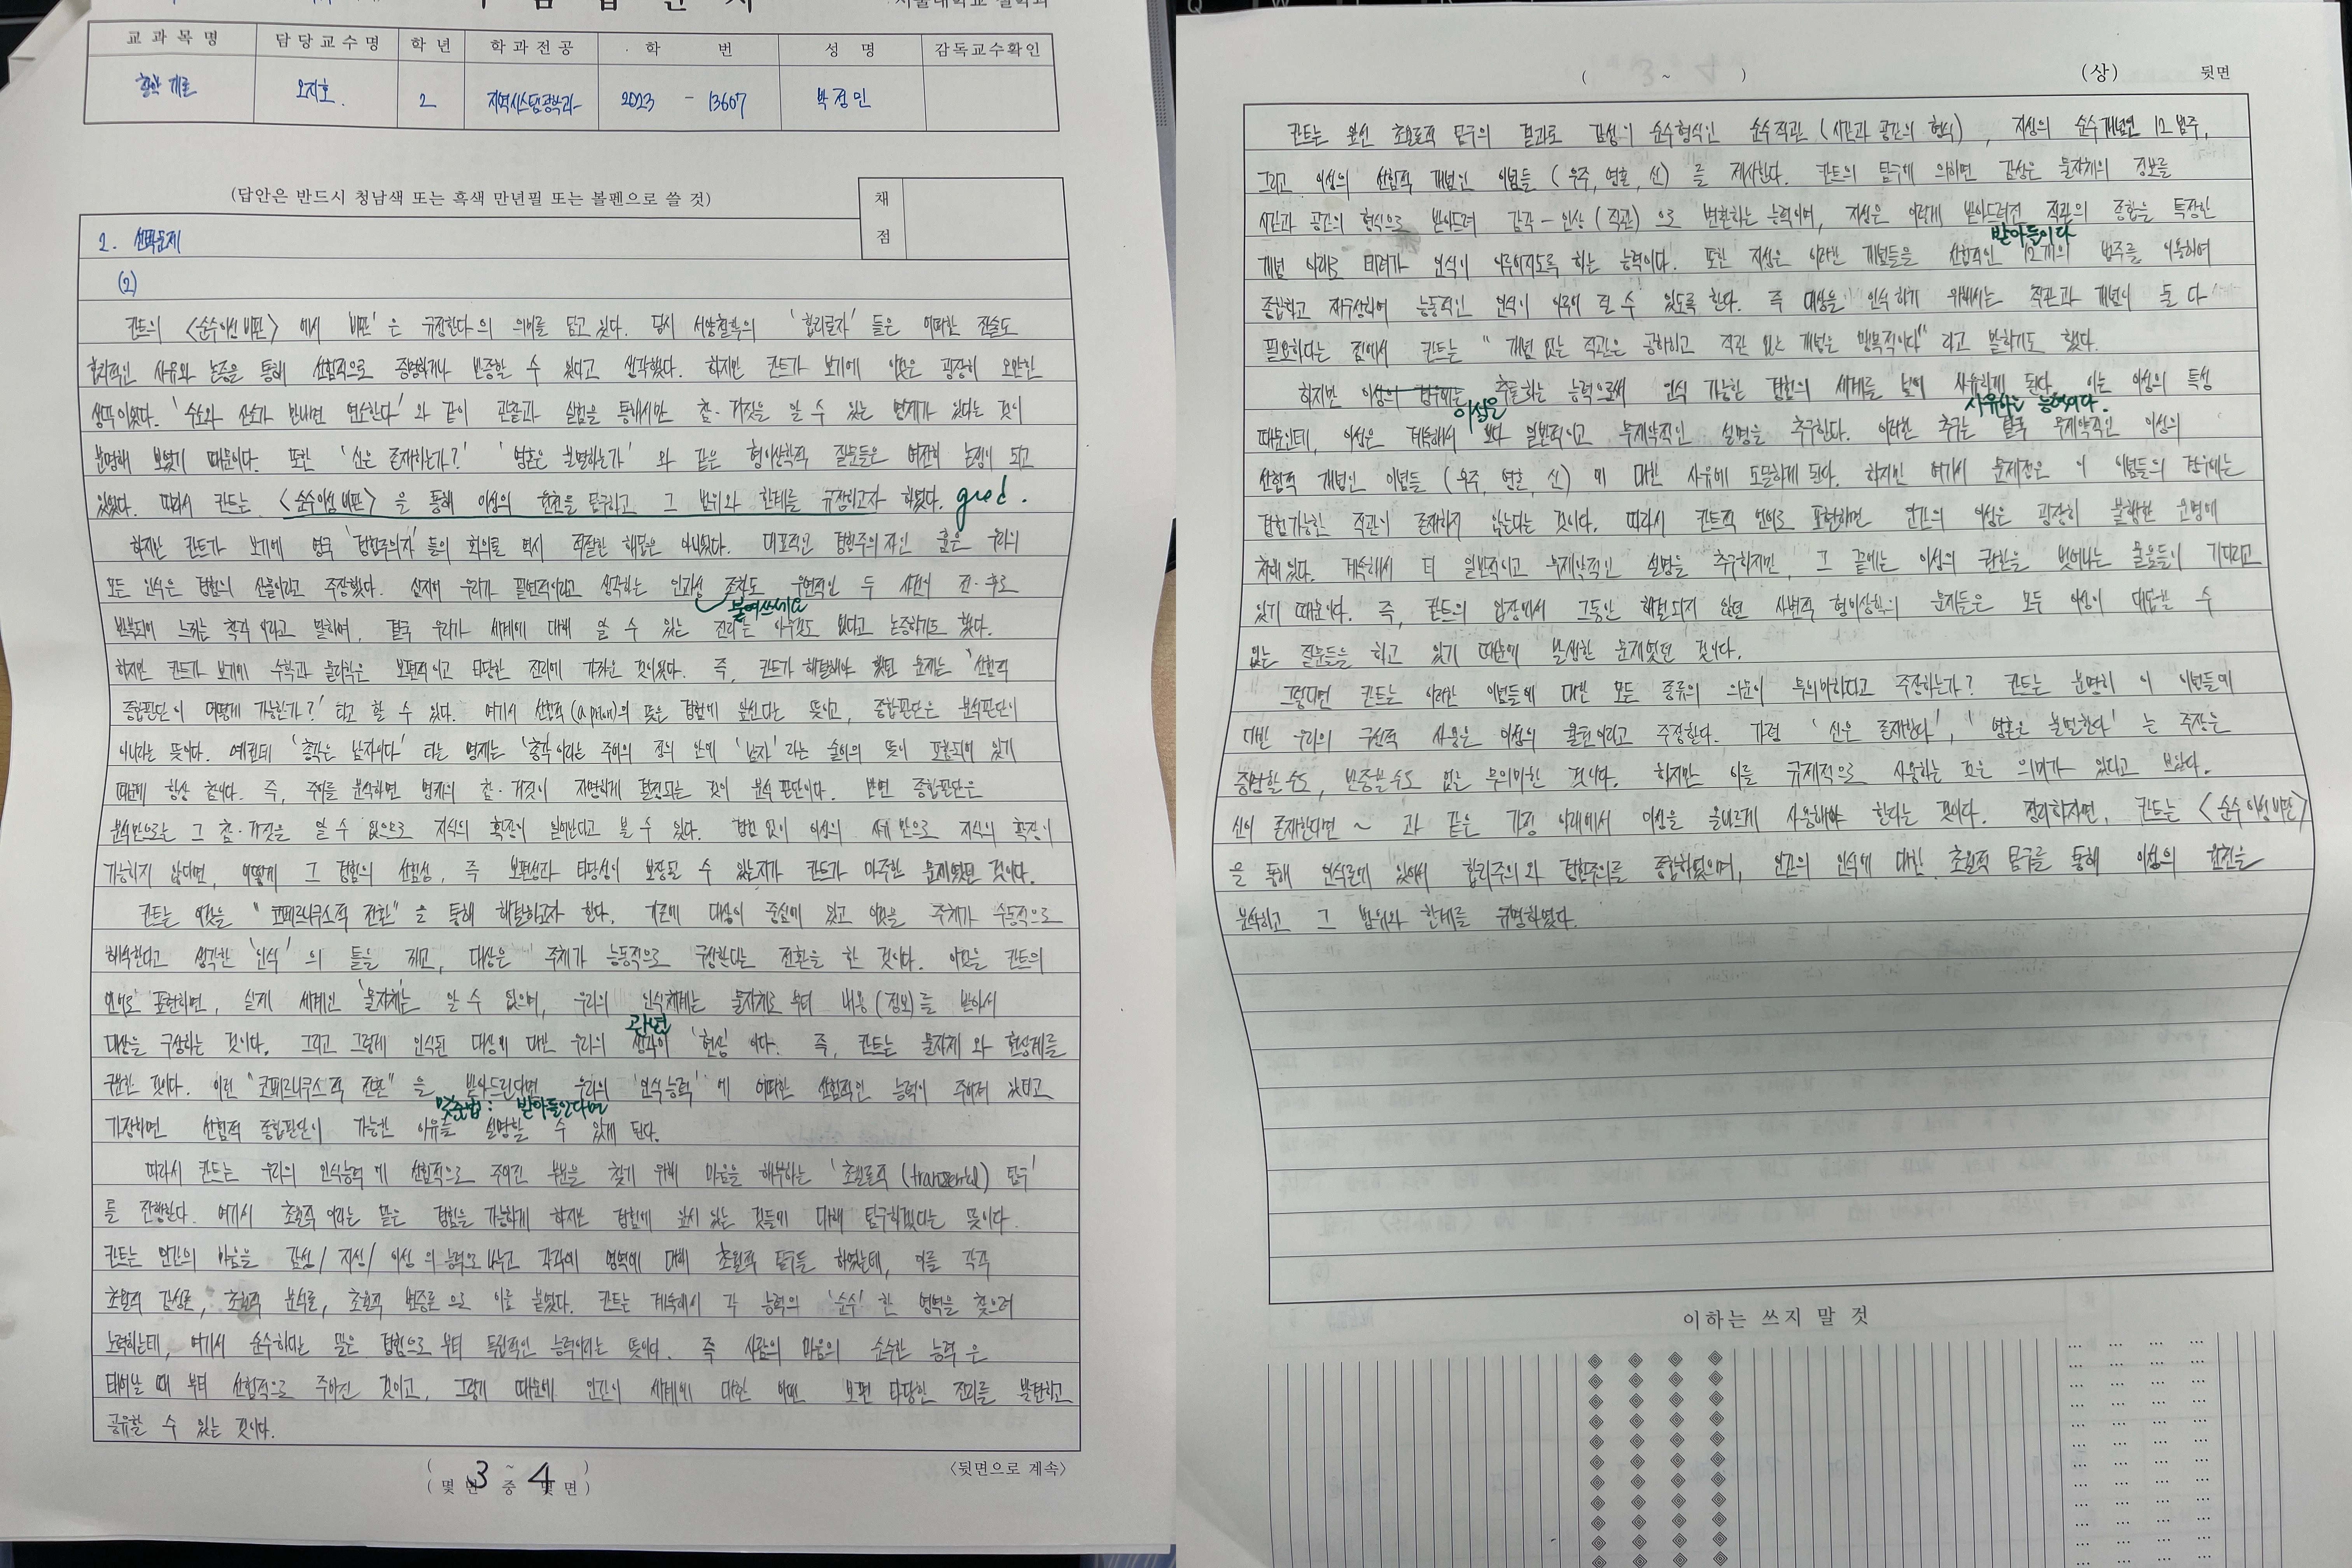 교과목명 담당교수명 학년 학과전공 학 번 성명 감독교수확인
철학 개론 오지호. 2 지역시스템공학과 2023 - 13607 박정민
(답안은 반드시 청남색 또는 흑색 만년필 또는 볼펜으로 쓸 것)
채
점
2. 선택문제
(2)
칸트의 <순수이성비판> 에서 '비판'은 규정한다의 의미를 담고 있다. 당시 서양철학의 '합리론자' 들은 어떠한 진술도
합리적인 사유와 논증을 통해 선험적으로 증명하거나 반증할 수 있다고 생각했다. 하지만 칸트가 보기에 이것은 굉장히 오만한
생각이었다. '수소와 산소가 만나면 연소한다'와 같이 관찰과 실험을 통해서만 참·거짓을 알 수 있는 명제가 있다는 것이
분명해 보였기 때문이다. 또한 '신은 존재하는가?' '영혼은 불멸하는가' 와 같은 형이상학적 질문들은 여전히 논쟁이 되고
있었다. 따라서 칸트는 <순수이성비판> 을 통해 이성의 원천을 탐구하고 그 범위와 한계를 규정하고자 하였다. good.
하지만 칸트가 보기에 영국 '경험주의자' 들의 회의론 역시 적절한 해답은 아니었다. 대표적인 경험주의자인 흄은 우리의
모든 인식은 경험의 산물이라고 주장했다. 심지어 우리가 필연적이라고 생각하는 인과성 조차도 우연적인 두 사건이 전·후로
붙여쓰세요
반복되어 느끼는 착각 이라고 말하며, 결국 우리가 세계에 대해 알 수 있는 진리는 아무것도 없다고 논증하기도 했다.
하지만 칸트가 보기에 수학과 물리학은 보편적이고 타당한 진리에 가까운 것이었다. 즉, 칸트가 해결해야 했던 문제는 '선험적
종합판단이 어떻게 가능한가?' 라고 할 수 있다. 여기서 선험적(a priori)의 뜻은 경험에 앞선다는 뜻이고, 종합판단은 분석판단이
아니라는 뜻이다. 예컨데 '총각은 남자이다' 라는 명제는 '총각'이라는 주어의 정의 안에 '남자' 라는 술어의 뜻이 포함되어 있기
때문에 항상 참이다. 즉, 주어를 분석하면 명제의 참·거짓이 자명하게 결정되는 것이 분석판단이다. 반면 종합판단은
분석만으로는 그 참·거짓을 알 수 없으므로 지식의 확장이 일어난다고 볼 수 있다. 경험 없이 이성의 사유만으로 지식의 확장이
가능하지 않다면, 어떻게 그 경험의 선험성, 즉 보편성과 타당성이 보장될 수 있는지가 칸트가 마주한 문제였던 것이다.
칸트는 이것을 "코페르니쿠스적 전환" 을 통해 해결하고자 한다. 기존에 대상이 중심에 있고 이것을 주체가 수동적으로
해석한다고 생각한 '인식' 의 틀을 깨고, 대상은 주체가 능동적으로 구성한다는 전환을 한 것이다. 이것을 칸트의
언어로 표현하면, 실제 세계인 '물자체'는 알 수 없으며, 우리의 인식체계는 물자체로 부터 내용(정보)를 받아서
관념
대상을 구성하는 것이다. 그리고 그렇게 인식된 대상에 대한 우리의 생각이 '현상' 이다. 즉, 칸트는 물자체 와 현상계를
구분한 것이다. 이런 "코페르니쿠스적 전환" 을 받아드린다면 우리의 '인식능력' 에 어떠한 선험적인 능력이 주어져 있다고
맞춤법: 받아들인다면
가정하면 선험적 종합판단이 가능한 이유를 설명할 수 있게 된다.
따라서 칸트는 우리의 인식능력에 선험적으로 주어진 부분을 찾기 위해 마음을 해부하는 '초월론적 탐구'
를 진행한다. 여기서 초월적 이라는 말은 경험을 가능하게 하지만 경험에 앞서 있는 것들에 대해 탐구하겠다는 뜻이다.
칸트는 인간의 마음을 감성/ 지성/ 이성 의 능력으로 나누고 각각의 영역에 대해 초월적 탐구를 하였는데, 이를 각각
초월적 감성론, 초월적 분석론, 초월적 변증론 으로 이름 붙였다. 칸트는 계속해서 각 능력의 '순수' 한 영역을 찾으려
노력하는데, 여기서 순수하다는 말은 경험으로 부터 독립적인 능력이라는 뜻이다. 즉 사람의 마음의 순수한 능력 은
태어날 때 부터 선험적으로 주어진 것이고, 그렇기 때문에 인간이 세계에 대한 어떤 보편 타당한 진리를 발견하고
공유할 수 있는 것이다.
( 3 ~ 4 )
(몇 면 중 몇 면)
<뒷면으로 계속>
( ~ ) (상) 뒷면
칸트는 우선 초월론적 탐구의 결과로 감성의 순수형식인 순수직관 (시간과 공간의 형식), 지성의 순수개념인 12범주,
그리고 이성의 선험적 개념인 이념들 (우주, 영혼, 신) 를 제시한다. 칸트의 탐구에 의하면 감성은 물자체의 정보를
시간과 공간의 형식으로 받아드려 감각-인상(직관) 으로 변환하는 능력이며, 지성은 이렇게 받아드려진 직관의 종합을 특정한
받아들이다
개념 아래로 데려가 인식이 이루어지도록 하는 능력이다. 또한 지성은 이러한 개념들을 선험적인 12개의 범주를 이용하여
종합하고 재구성하여 능동적인 인식이 이루어 질 수 있도록 한다. 즉 대상을 인식하기 위해서는 직관과 개념이 둘 다
필요하다는 점에서 칸트는 "개념 없는 직관은 공허하고 직관 없는 개념은 맹목적이다" 라고 말하기도 했다.
하지만 이성의 경우에는 추론하는 능력으로써 인식 가능한 경험의 세계를 넘어 사유하게 된다. 이는 이성의 특성
이성은 사유하는 능력이다.
때문인데, 이성은 계속해서 보다 일반적이고 무제약적인 설명을 추구한다. 이러한 추구는 결국 무제약적인 이성의
선험적 개념인 이념들 (우주, 영혼, 신) 에 대한 사유에 도달하게 된다. 하지만 여기서 문제점은 이 이념들의 경우에는
경험가능한 직관이 존재하지 않는다는 것이다. 따라서 칸트적 언어로 표현하면 인간의 이성은 굉장히 불행한 운명에
처해있다. 계속해서 더 일반적이고 무제약적인 설명을 추구하지만, 그 끝에는 이성의 권한을 벗어나는 물음들이 기다리고
있기 때문이다. 즉, 칸트의 입장에서 그동안 해결되지 않던 사변적 형이상학의 문제들은 모두 이성이 대답할 수
없는 질문들을 하고 있기 때문에 발생한 문제였던 것이다.
그렇다면 칸트는 이러한 이념들에 대한 모든 종류의 의문이 무의미하다고 주장하는가? 칸트는 분명히 이 이념들에
대한 우리의 구성적 사용은 이성의 월권이라고 주장한다. 가령 '신은 존재한다', '영혼은 불멸한다' 는 주장은
증명할 수도, 반증할 수도 없는 무의미한 것이다. 하지만 이를 규제적으로 사용하는 것은 의미가 있다고 보았다.
신이 존재한다면 ~ 과 같은 가정 아래에서 이성을 올바르게 사용해야 한다는 것이다. 정리하자면, 칸트는 <순수이성비판>
을 통해 인식론에 있어서 합리주의와 경험주의를 종합하였으며, 인간의 인식에 대한 초월적 탐구를 통해 이성의 원천을
분석하고 그 범위와 한계를 규명하였다.
이하는 쓰지 말 것